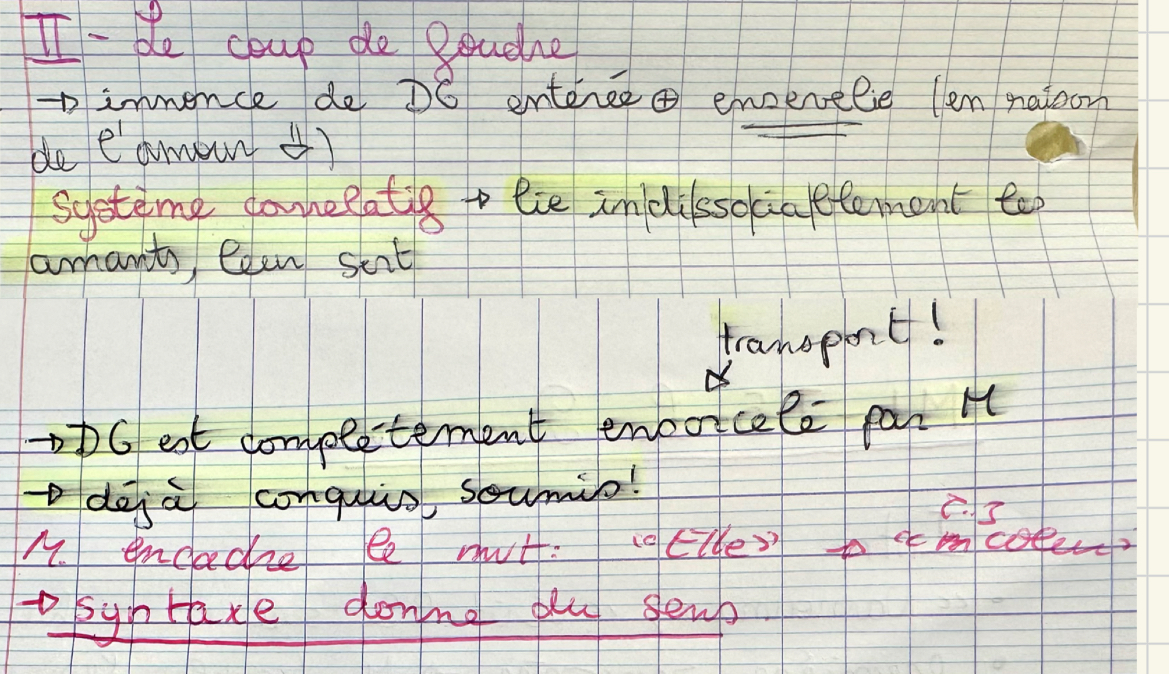 II - Le coup de foudre
→ innonce de DG entérée ⊕ ensevelie (en raison
de l'amour ⇓)
Système correlatif → lie in/di/ssocia/blement les
amants, leur sort
transport!
→ DG est complètement ensorcelé par M
→ déjà conquis, soumis!
C.S
M. encadre le mvt: "Elle" → "m coeur"
→ syntaxe donne du sens